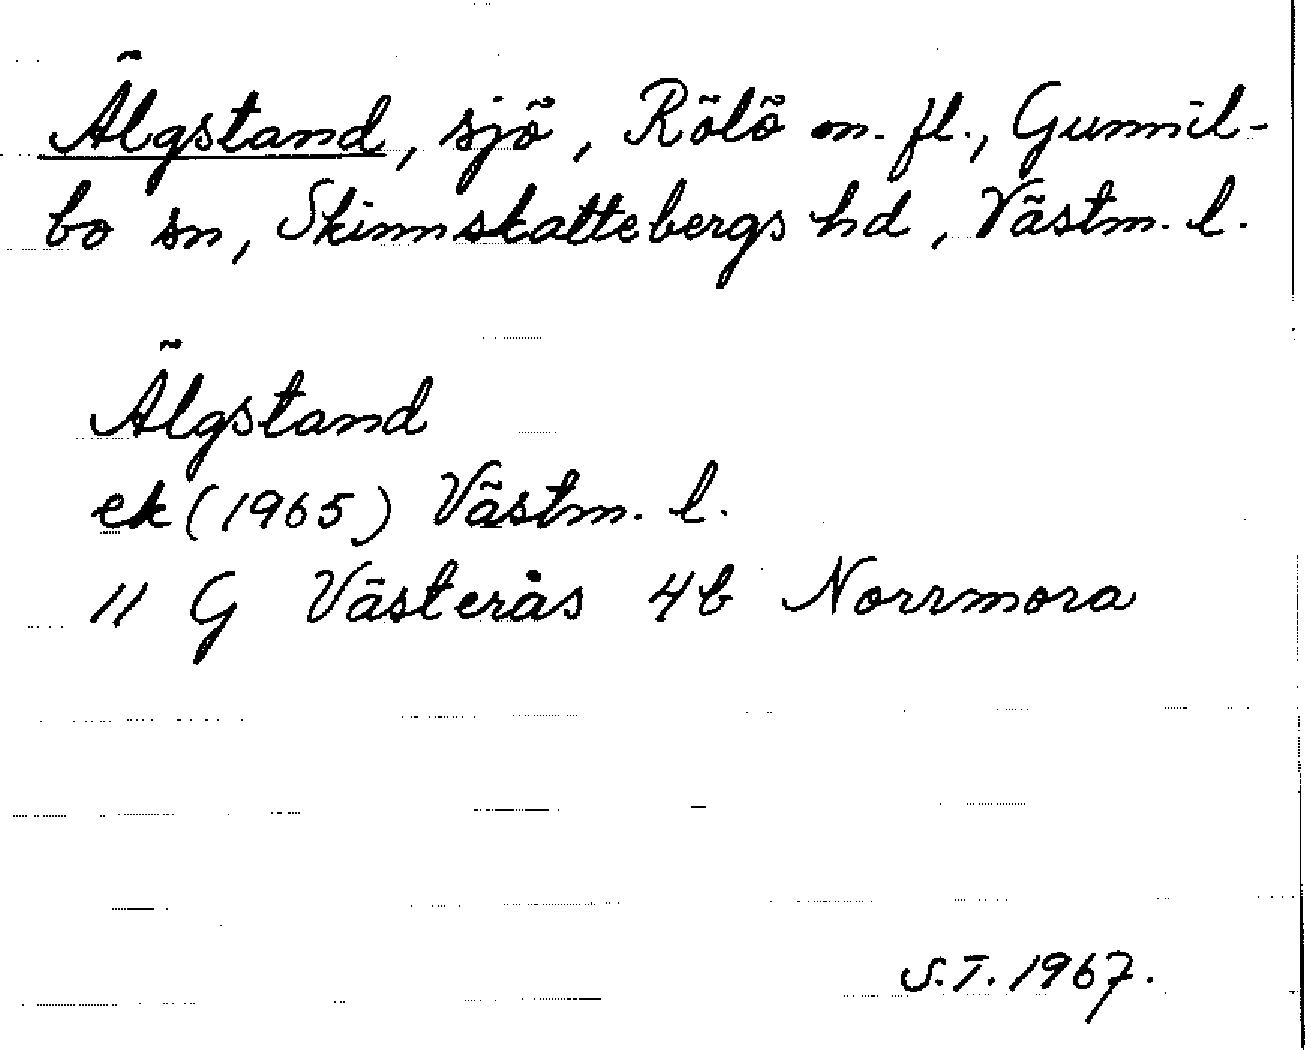 Älgstand, sjö, Rölö m. fl., Gunnil-
bo sn, Skinnskattebergs hd, Västm. l.
Älgstand
ek (1965) Västm. l.
11 G Västerås 4b Norrmora
S.T. 1967.